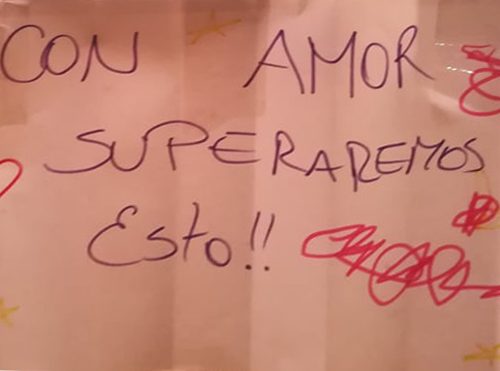 CON AMOR
SUPERAREMOS
Esto!!